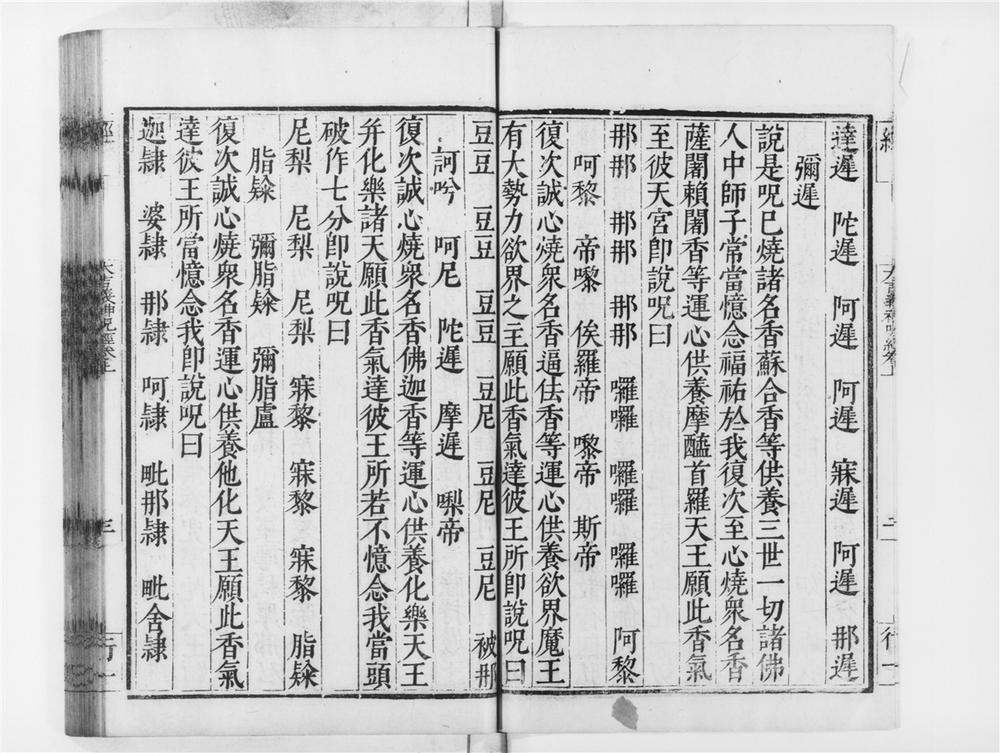 達遲　陀遲　阿遲　阿遲　寐遲　阿遲　那遲
彌遲
說是呪已燒諸名香蘇合香等供養三世一切諸佛
人中師子常當憶念福祐於我復次至心燒衆名香
薩闍賴闍香等運心供養摩醯首羅天王願此香氣
至彼天宮卽說呪曰
那那　那那　那那　囉囉　囉囉　囉囉　阿黎
呵黎　帝嚟　俟羅帝　嚟帝　斯帝
復次誠心燒衆名香逼佉香等運心供養欲界魔王
有大勢力欲界之主願此香氣達彼王所卽說呪曰
豆豆　豆豆　豆豆　豆尼　豆尼　豆尼　被那
訶吟　呵尼　陀遲　摩遲　唎帝
復次誠心燒衆名香佛迦香等運心供養化樂天王
幷化樂諸天願此香氣達彼王所若不憶念我當頭
破作七分卽說呪曰
尼梨　尼梨　尼梨　寐黎　寐黎　寐黎　脂㸌
脂㸌　彌脂㸌　彌脂盧
復次誠心燒衆名香運心供養他化天王願此香氣
達彼王所當憶念我卽說呪曰
迦隸　婆隸　那隸　呵隸　毗那隸　毗舍隸
經
大吉義神呪經卷上
三
行一